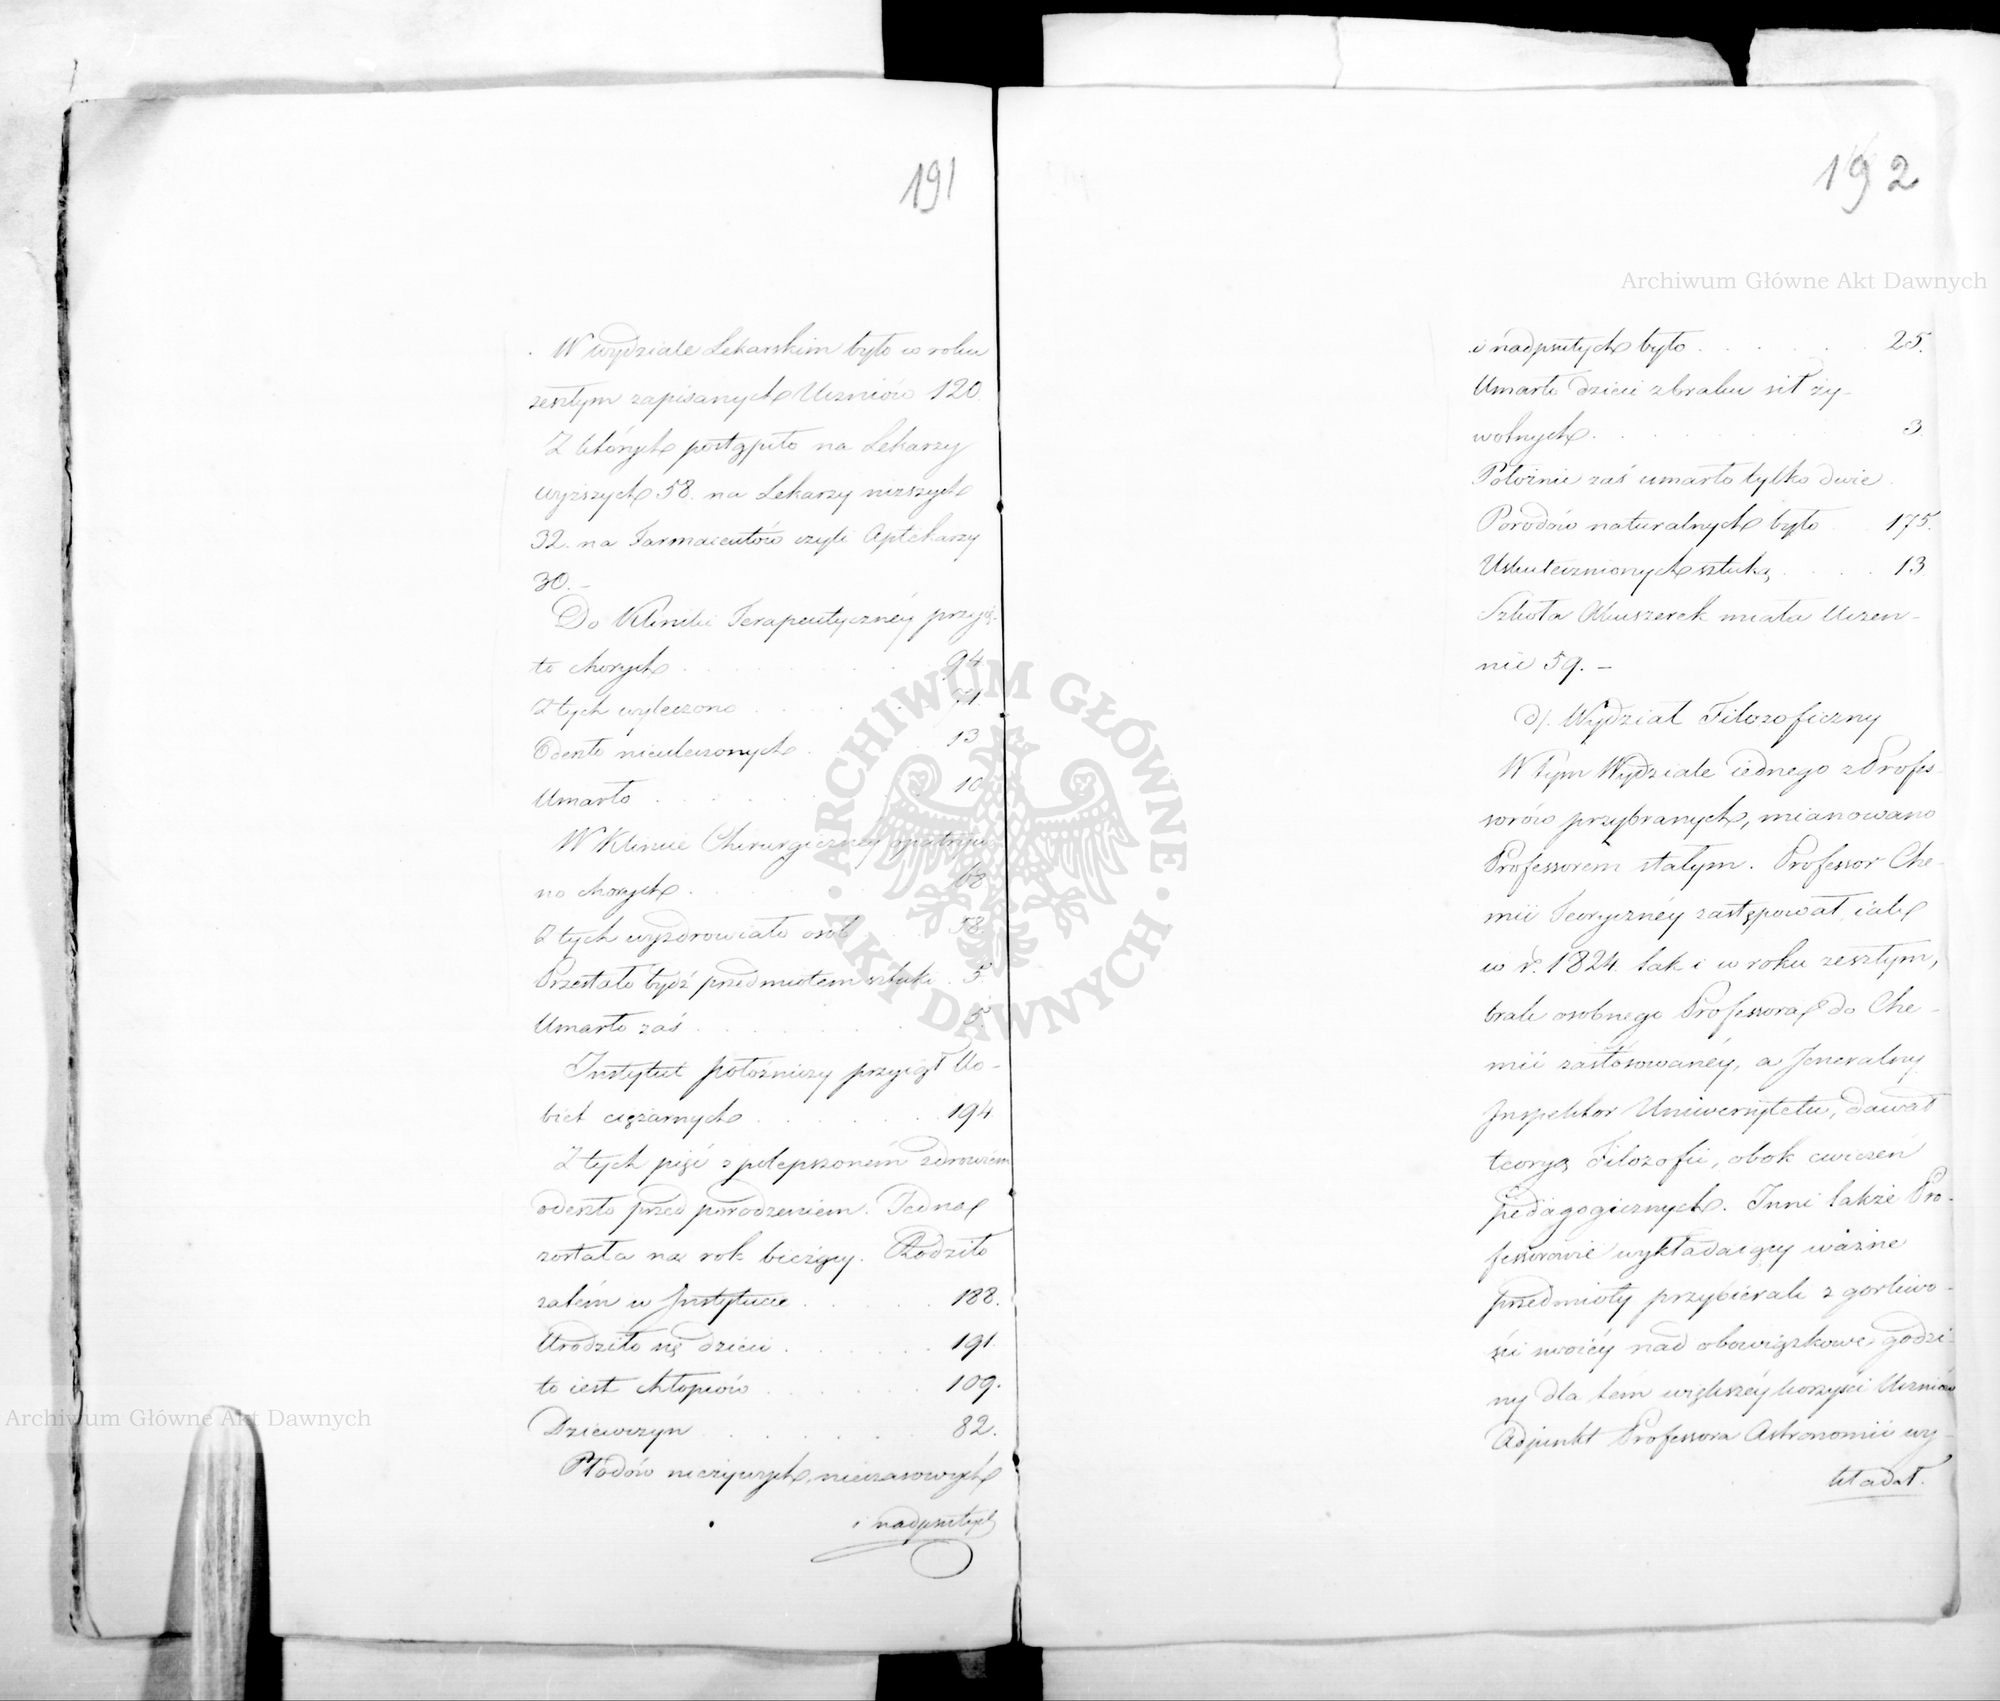 191
W wydziale Lekarskim było w roku
zeszłym zapisanych Uczniów 120.
Z których postąpiło na Lekarzy
wyższych 58. na Lekarzy niższych
32. na Farmaceutów czyli Aptekarzy
30. –
Do Kliniki Terapeutycznéy przyię-
to chorych . . . . . . 94
Z tych wyleczono . . . . . 71.
Odeszło nieuleczonych . . . 13
Umarło . . . . . . 10
W Klinice Chirurgicznéy opatryw
no chorych . . . . . . 68
Z tych wyzdrowiało osób . . . 58.
Przestało bydź przedmiotem sztuki . 5.
Umarło zaś . . . . . 5.
Instytut położniczy przyiął Ko-
biet ciężarnych . . . . . 194
Z tych pięć z polepszoném zdrowiem
odeszło przed porodzeniem. Jedna
została na rok bieżący. Rodziło
zatém w Instytucie . . . . . 188.
Urodziło się dzieci . . . . . 191.
to iest chłopców . . . . . 109.
Dziewczyn . . . . . . 82.
Płodów nieżywych, nieczasowych
i nadpsutych
192
i nadpsutych było . . . . . 25.
Umarło dzieci z braku sił ży-
wotnych . . . . . . 3
Położnic zaś umarło tylko dwie.
Porodów naturalnych było . . 175.
Uskutecznionych sztuką . . . . 13
Szkoła Akuszerek miała Uczen-
nic 59. –
d). Wydział Filozoficzny
W tym Wydziale iednego z Profes-
sorów przybranych, mianowano
Professorem stałym. Professor Che-
mii Teorycznéy zastępował, iak
w r. 1824. tak i w roku zeszłym,
brak osobnego Professora do Che-
mii zastósowanéy, a Jeneralny
Inspektor Uniwersytetu, dawał
teoryą Filozofii, obok cwiczeń
pedagogicznych. Inni także Pro-
fessorowie wykładaiący ważne
przedmioty przybierali z gorliwo-
ści swoiéy nad obowiązkowe godzi-
ny dla tém większéy korzyści Uczniów
Adjunkt Professora Astronomii wy-
kładał.
Archiwum Główne Akt Dawnych
Archiwum Główne Akt Dawnych
ARCHIWUM GŁÓWNE AKT DAWNYCH